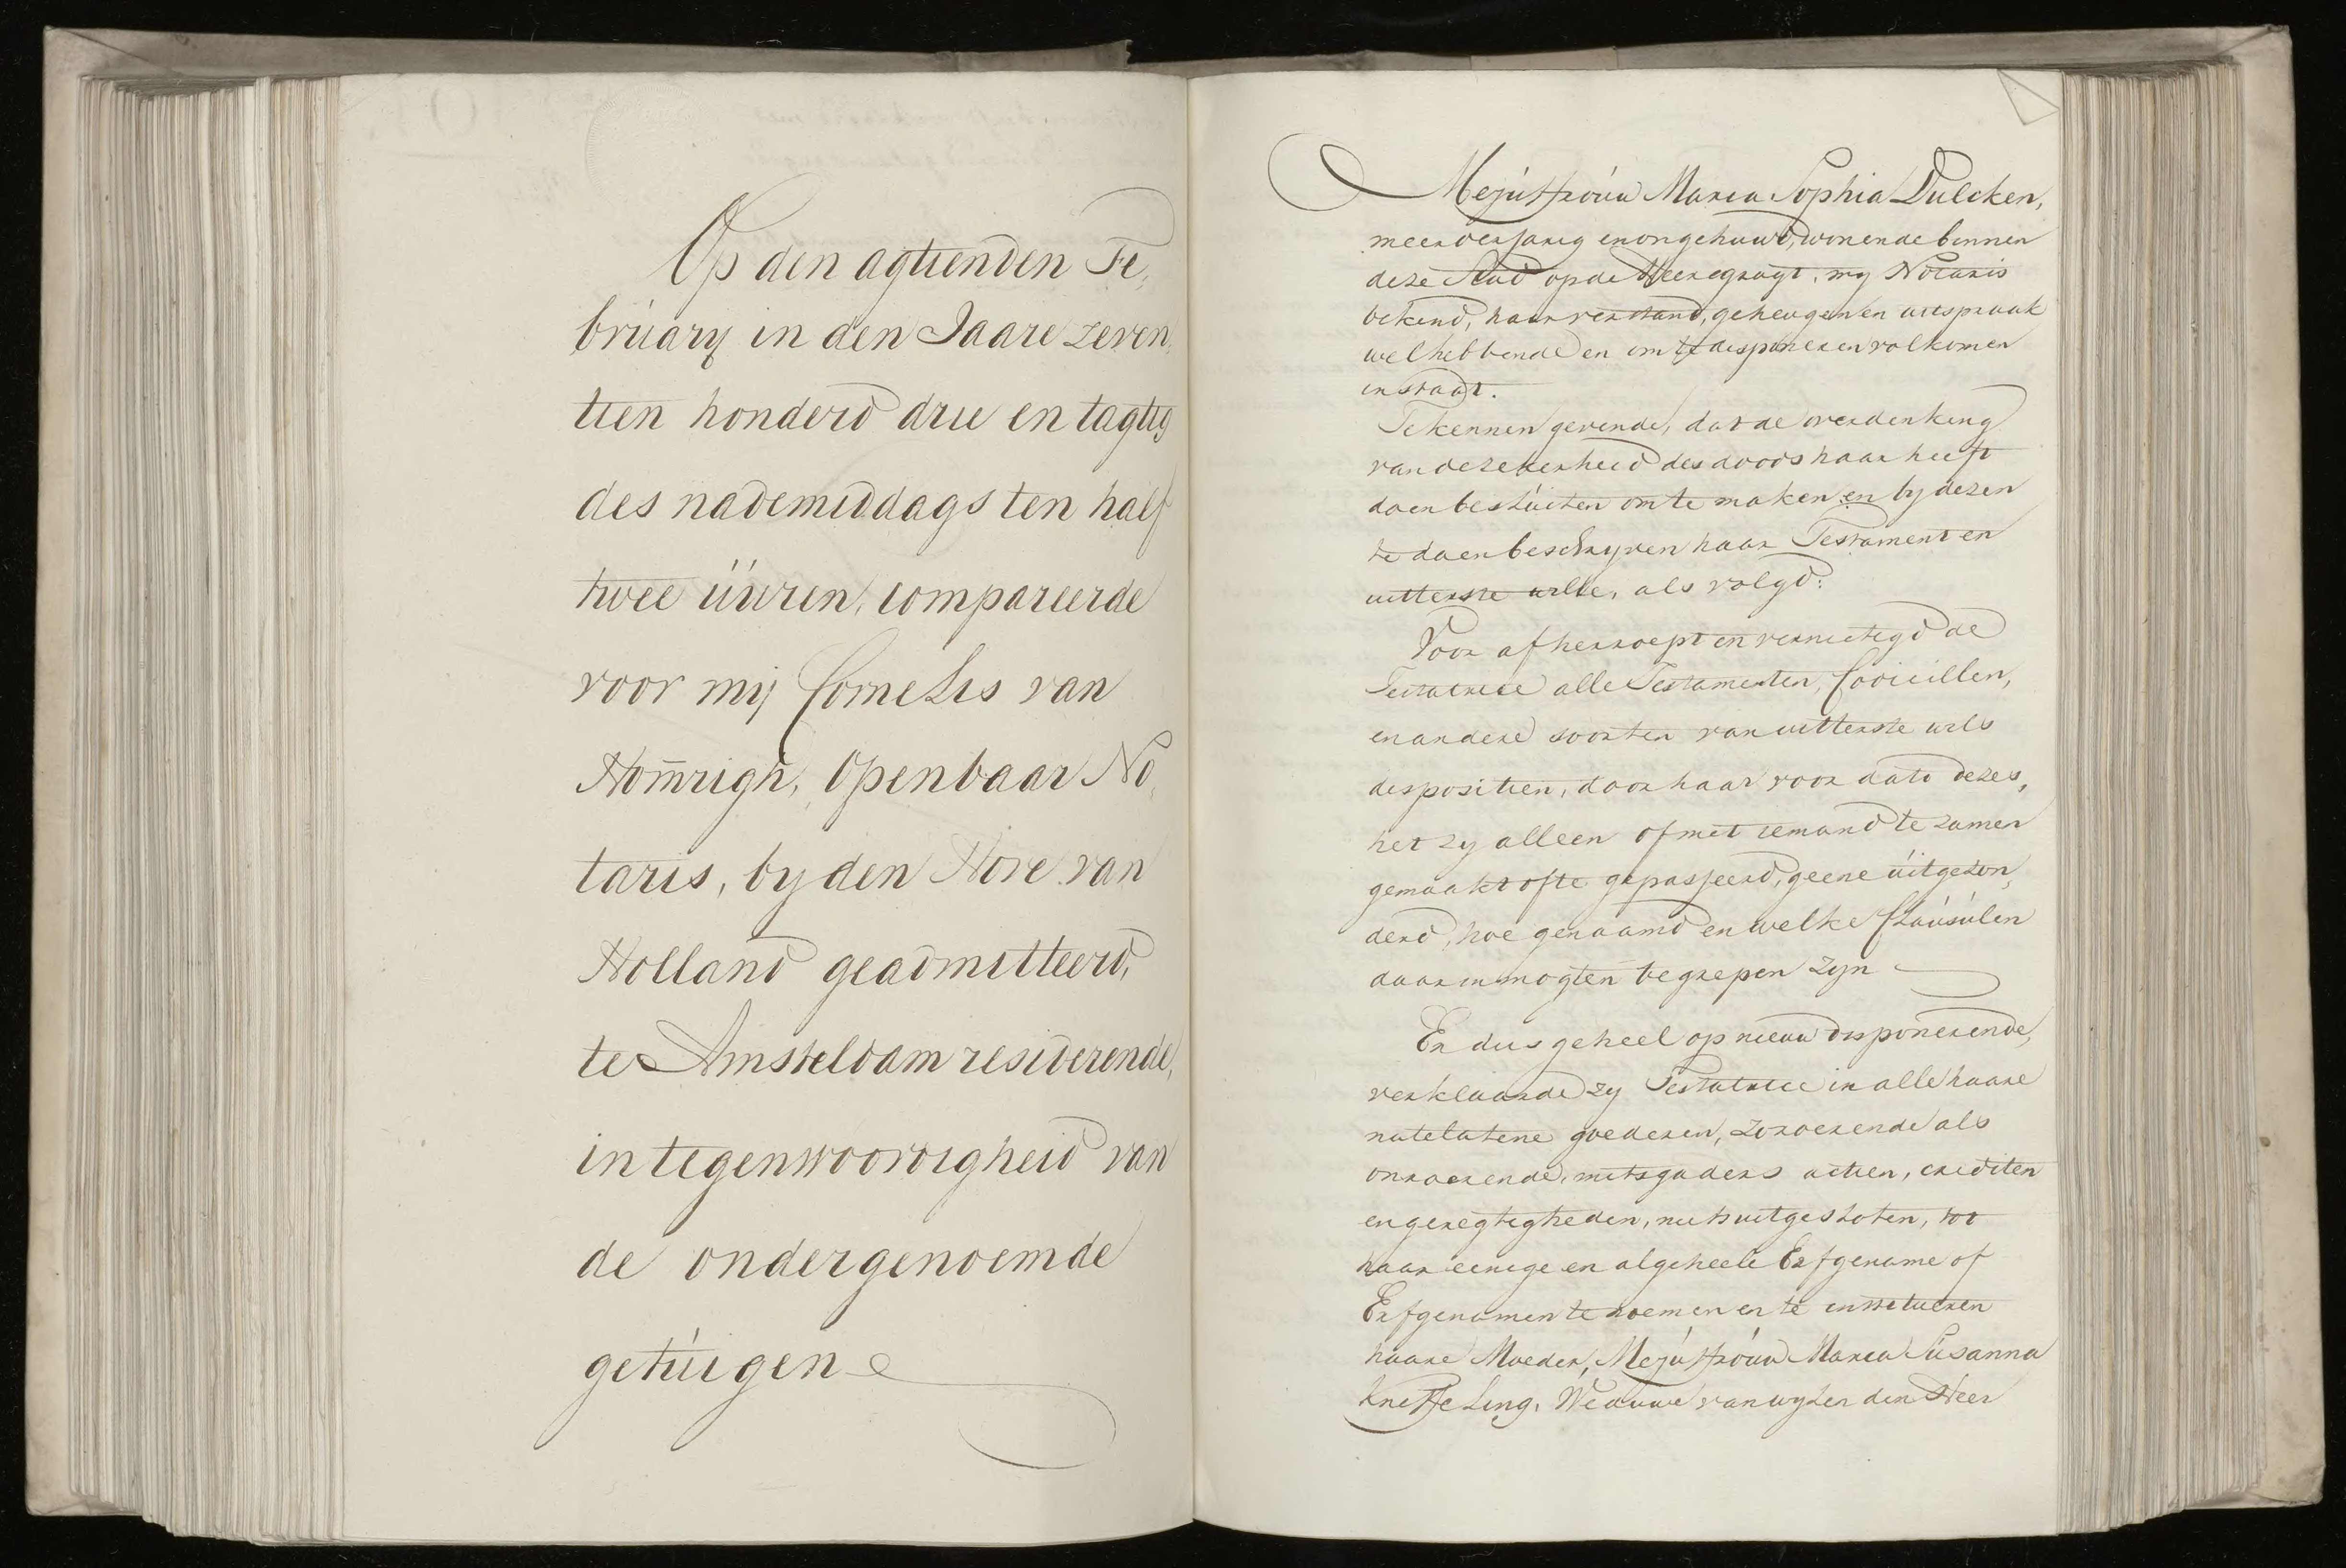 Op den agtienden Fe,
bruarij in den Jaare zeven,
tien honderd drie en tagtig
des nademiddags ten half
twee üuren, compareerde
voor mij Cornelis van
Hom̅righ, Openbaar No,
taris, by den Hove van
Holland geadmitteerd,
te Amsteldam residerende,
in tegenwoordigheid van
de ondergenoemde
getuigen
Mejuffrouw Maria Sophia Dulcken,
meerderjarig en ongehuwd, wonende binnen
deze Stad op de Heeregragt, my Notaris
bekend, haar verstand, geheugen en uitspraak
wel hebbende en om te disponeren volkomen
in staat.
Te kennen gevende, dat de overdenking
van de zekerheid des doods haar heeft
doen besluiten om te maken en by dezen
te doen beschryven haar Testament en
uitterste wille, als volgd:
Voor af herroept en vernietigd de
Testatrice alle Testamenten, Codicillen,
en andere soorten van uitterste wils
dispositien, door haar voor dato dezes,
het zy alleen of met iemand te zamen
gemaakt ofte gepasseerd, geene uitgezon,
derd, hoe genaamd en welke Clausulen
daar in mogten begrepen zyn
En dus geheel op nieuw disponerende,
verklaarde zy Testatrice in alle haare
natelatene goederen, zo roerende als
onroerende, mitsgaders actien, crediten
en geregtigheden, niets uitgesloten, tot
haar eenige en algeheele Erfgename of
Erfgenamen te noemen en te institueren
haare Moeder, Mejuffrouw Maria Susanna
Kneffeling, Weduwe van wylen den Heer